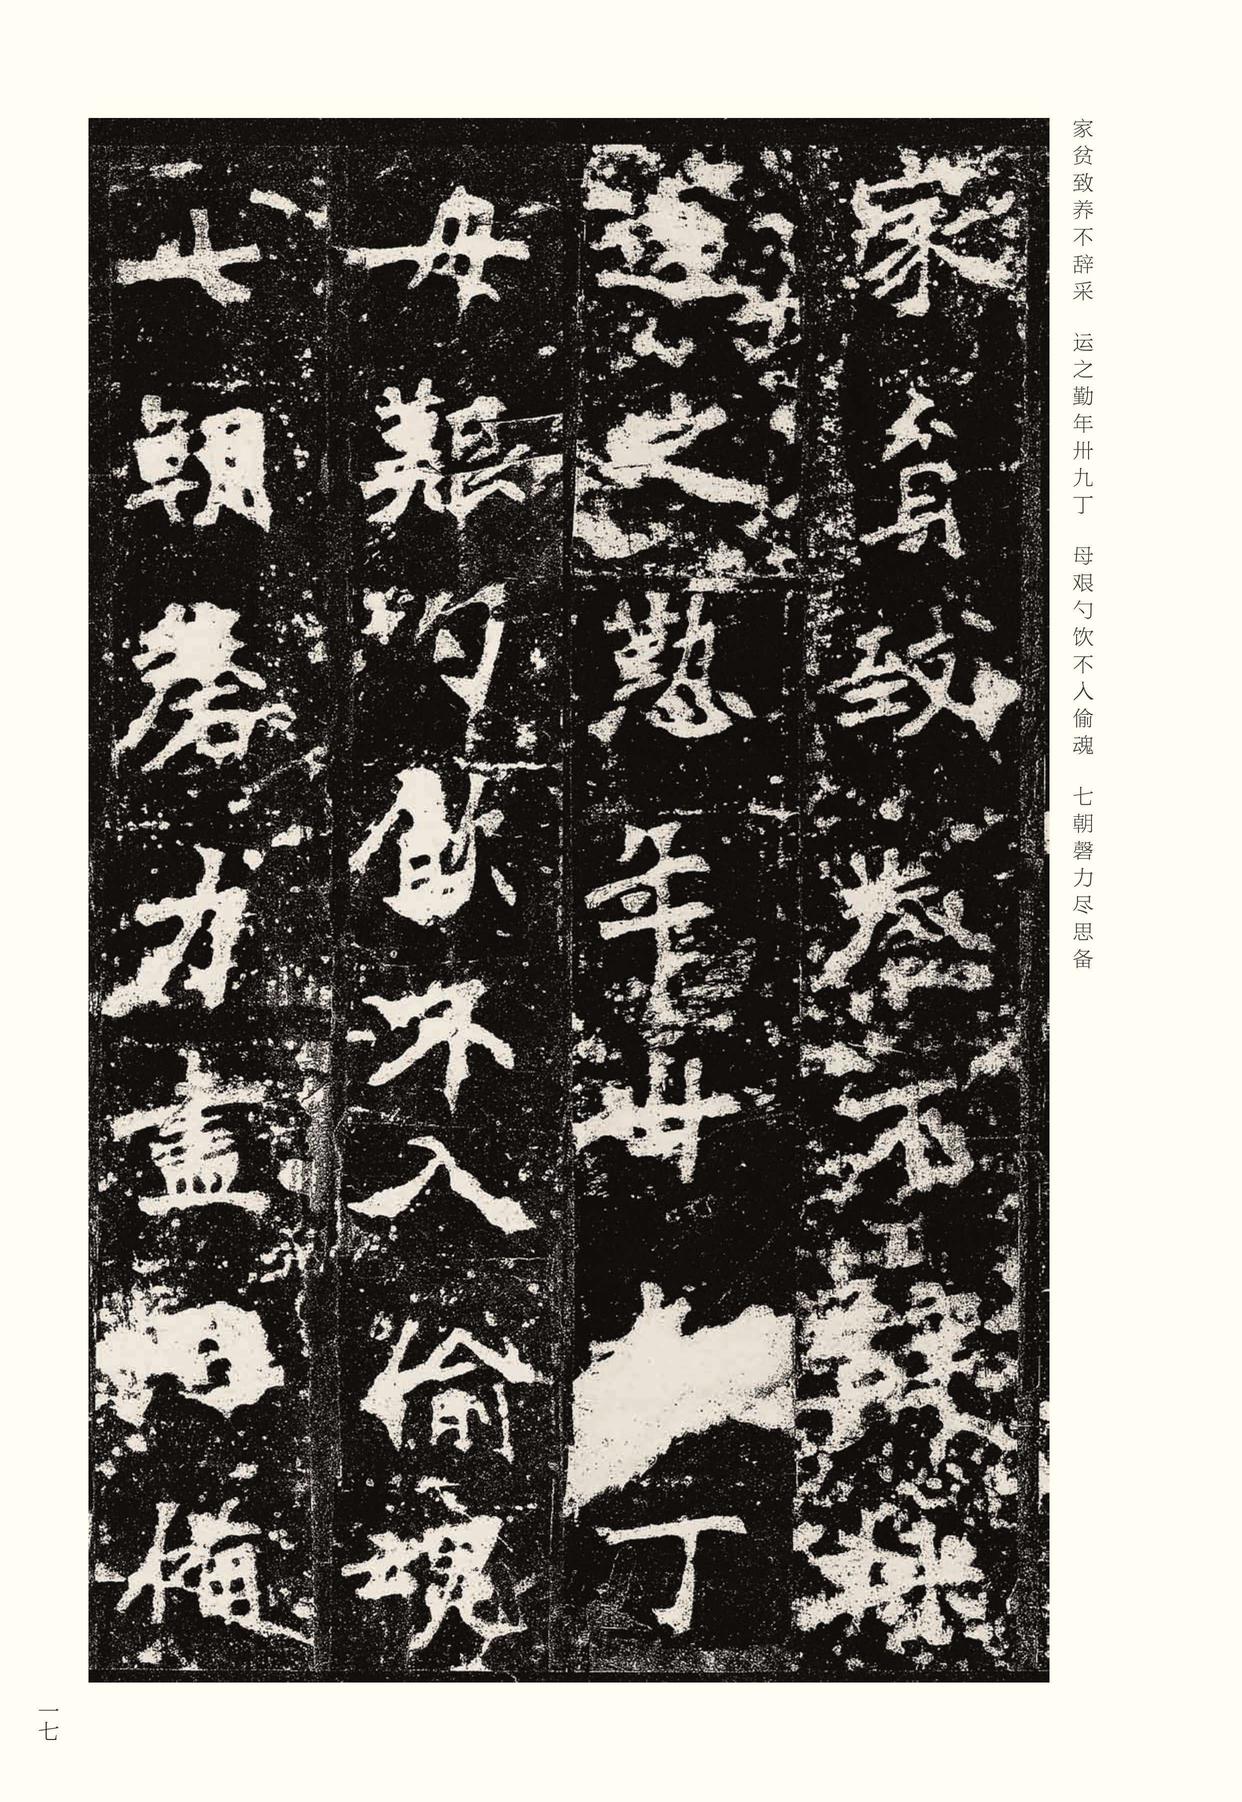 家贫致养不辞采　运之勤年卅九丁　母艰勺饮不入偷魂　七朝磬力尽思备
家貧致養不辭採
運之懃年卅丁
母艱勺飲不入偷魂
七朝磬力盡思備
一七